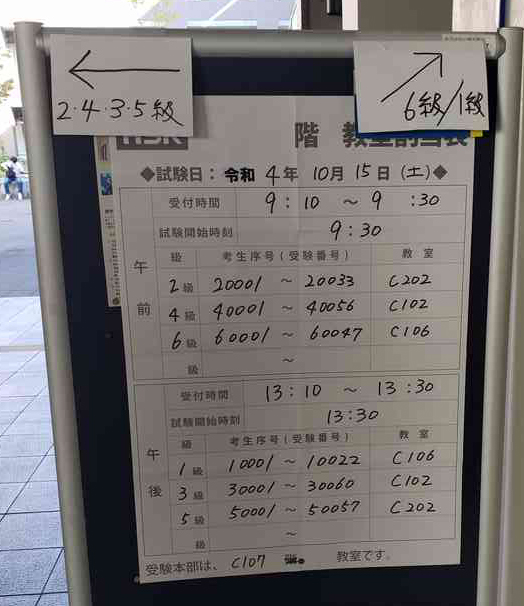 2・4・3・5級
6級/1級
HSK 階 教室割当表
◆試験日: 令和 4年 10月 15日 (土)◆
午前
受付時間 9:10 ~ 9:30
試験開始時刻 9:30
級 考生序号(受験番号) 教室
2級 20001 ~ 20033 C202
4級 40001 ~ 40056 C102
6級 60001 ~ 60047 C106
級 ~
午後
受付時間 13:10 ~ 13:30
試験開始時刻 13:30
級 考生序号(受験番号) 教室
1級 10001 ~ 10022 C106
3級 30001 ~ 30060 C102
5級 50001 ~ 50057 C202
級 ~
受験本部は、 C107 教室です。